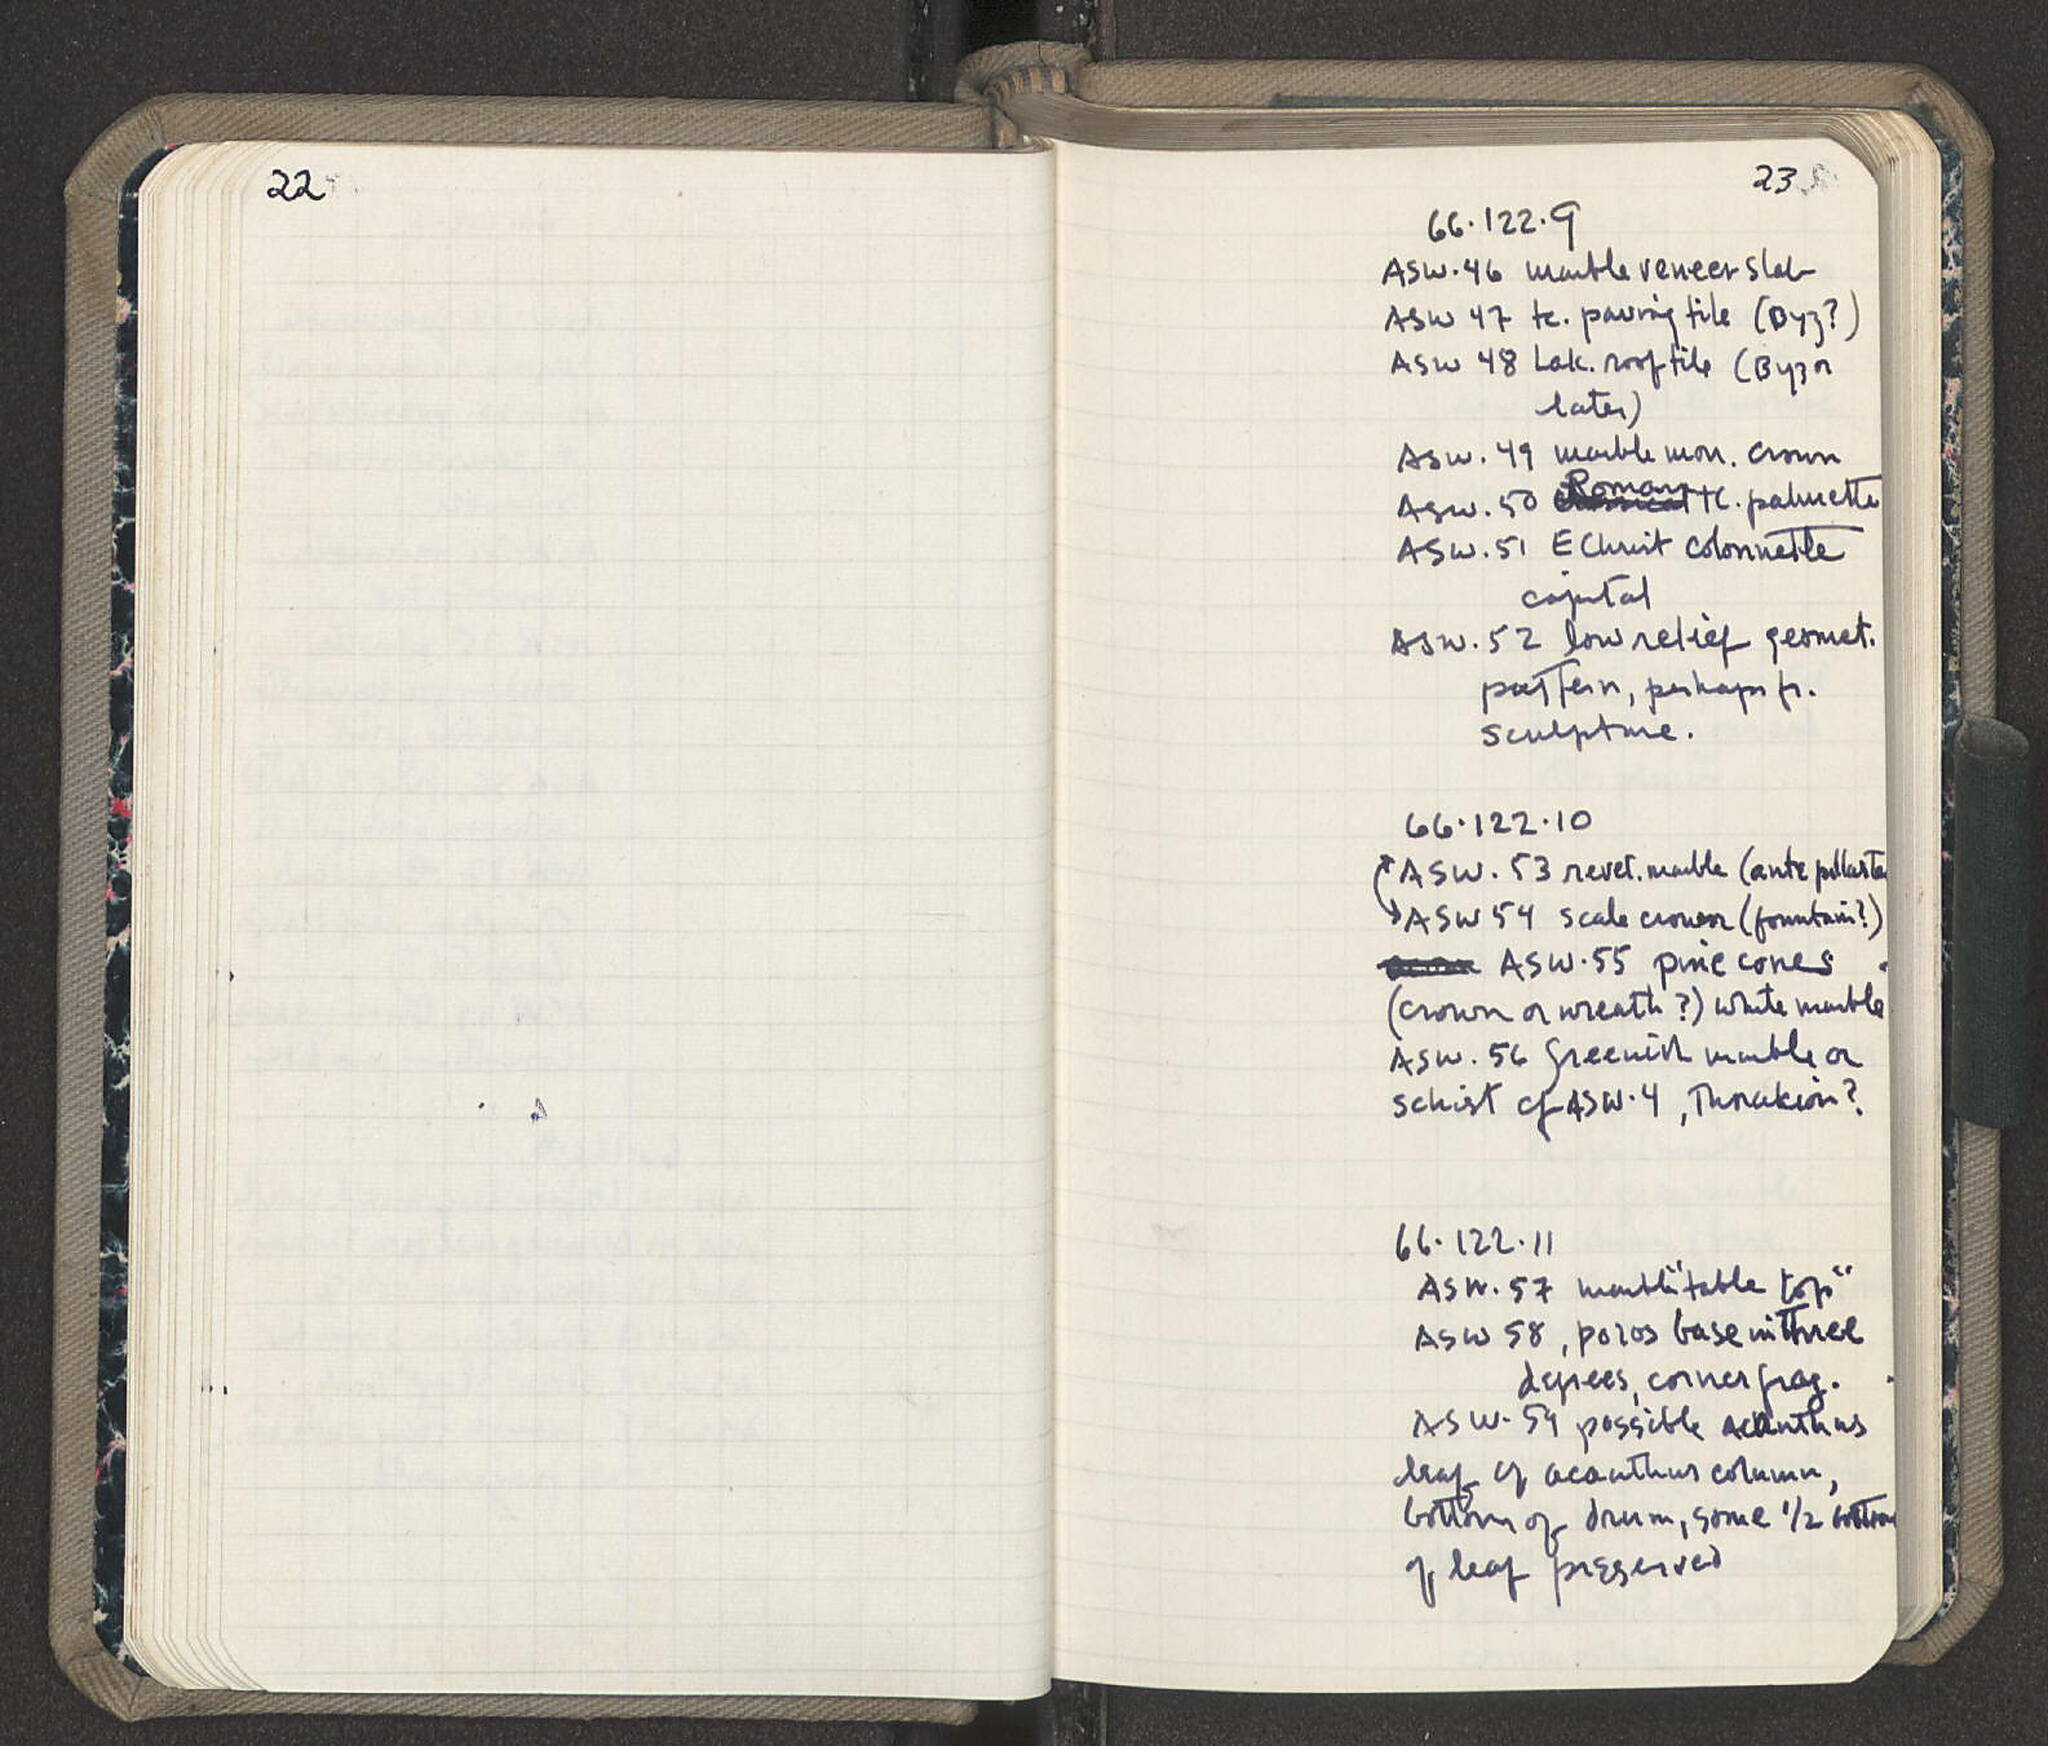 22
23
66.122.9
ASW.46 marble veneer slab
ASW 47 tc. paving tile (Byz?)
ASW 48 Lak. rooftile (Byz or
later)
ASW.49 marble mon. crown
Roman
ASW.50 classical tc. palmette
ASW.51 E Christ colonnette
capital
ASW.52 low relief geomet.
pattern, perhaps fr.
sculpture.
66.122.10
ASW.53 revet. marble (ante pilaster
ASW 54 scale crown (fountain?)
ASW.55 pine cones
(crown or wreath?) white marble
ASW.56 greenish marble or
schist cf ASW.4, Thorakion?
66.122.11
ASW.57 marble "table top"
ASW 58, poros base w three
degrees, corner frag.
ASW.59 possible acanthus
leaf of acanthus column,
bottom of drum, some 1/2 bottom
of leaf preserved